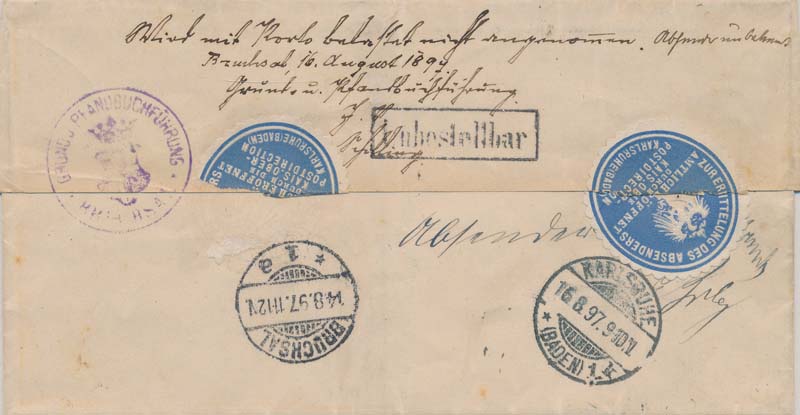 Wird mit Porto belastet nicht angenommen. Absender unbekannt
Bruchsal, 16. August 1897
Grund- u. Pfandbuchführung
Unbestellbar
GRUND & PFANDBUCHFÜHRUNG
BRUCHSAL
ZUR ERMITTELUNG DES ABSENDERS
AMTLICH GEÖFFNET
DURCH DIE
KAIS. OBER-
POSTDIRECTION
KARLSRUHE (BADEN)
Absender
BRUCHSAL
14.8.97.11-12V.
* 1 e
KARLSRUHE
16.8.97.9-10.V.
* (BADEN) 1. k